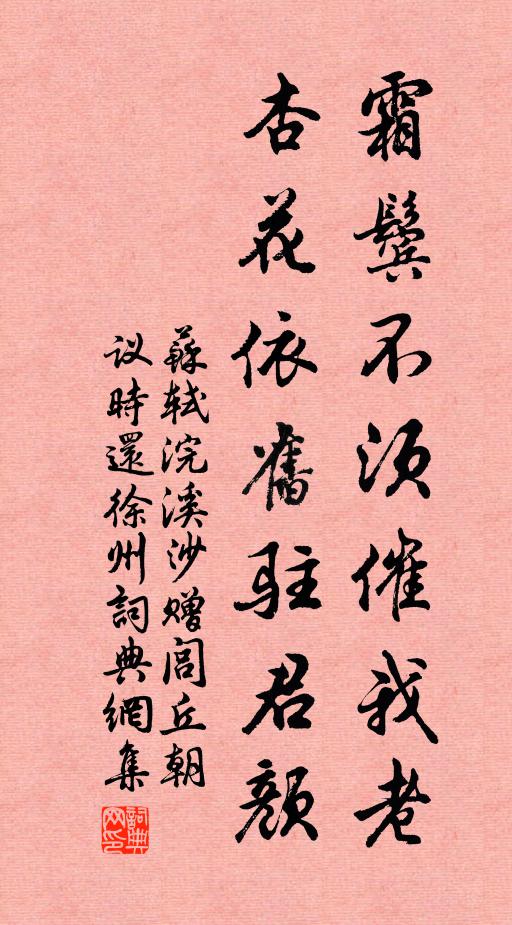 霜鬢不須催我老
杏花依舊駐君顏
蘇軾浣溪沙赠閭丘朝
议時還徐州詞典網集
詞典网印